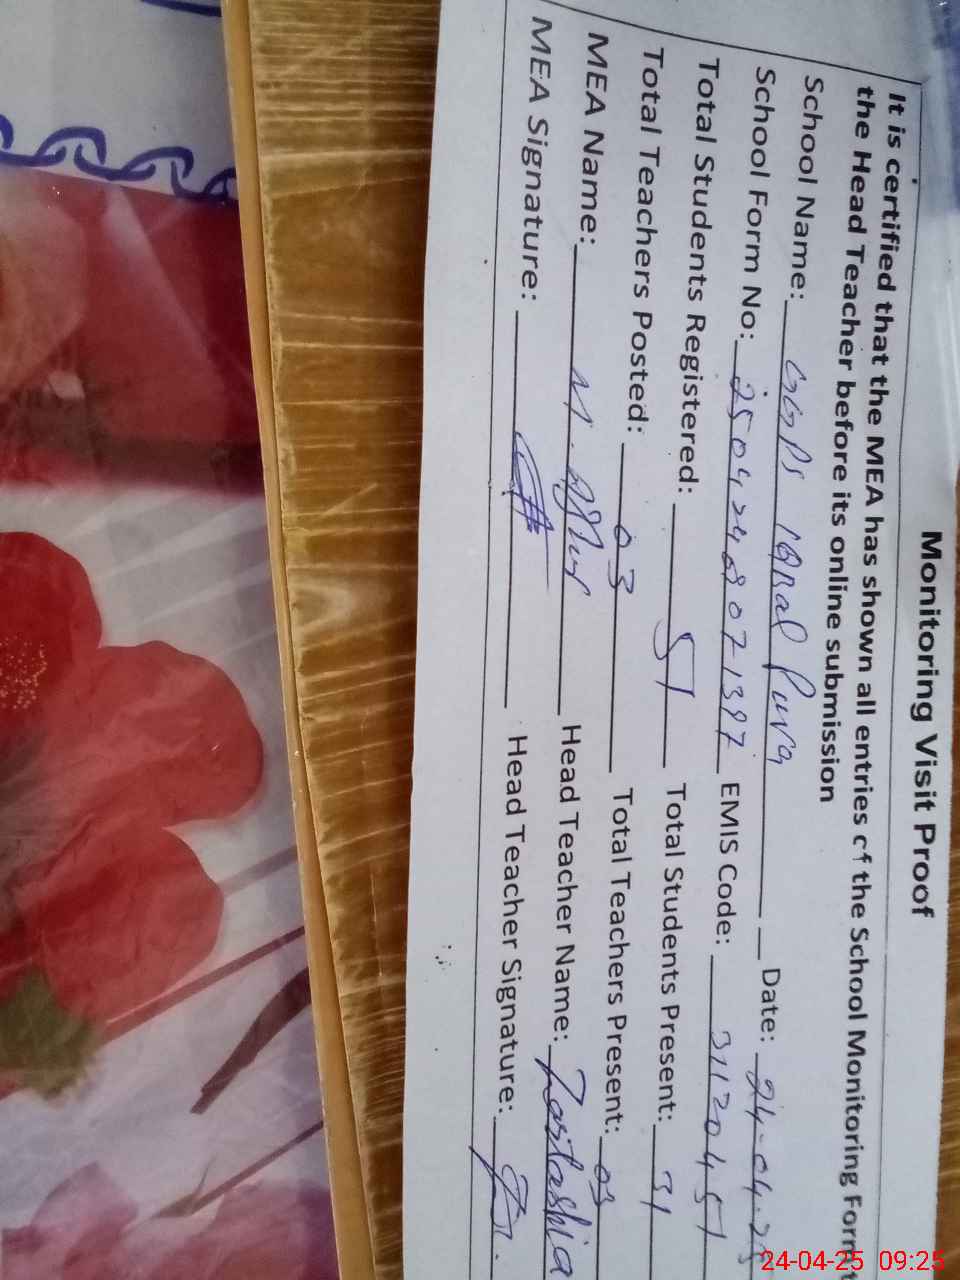 Monitoring Visit Proof
It is certified that the MEA has shown all entries of the School Monitoring Form to
the Head Teacher before its online submission
School Name: GGPS Iqbal Pura Date: 24-04-25
School Form No: 25042428071397 EMIS Code: 31120451
Total Students Registered: 51 Total Students Present: 31
Total Teachers Posted: 03 Total Teachers Present: 03
MEA Name: M. Head Teacher Name:
MEA Signature: Head Teacher Signature:
24-04-25 09:25